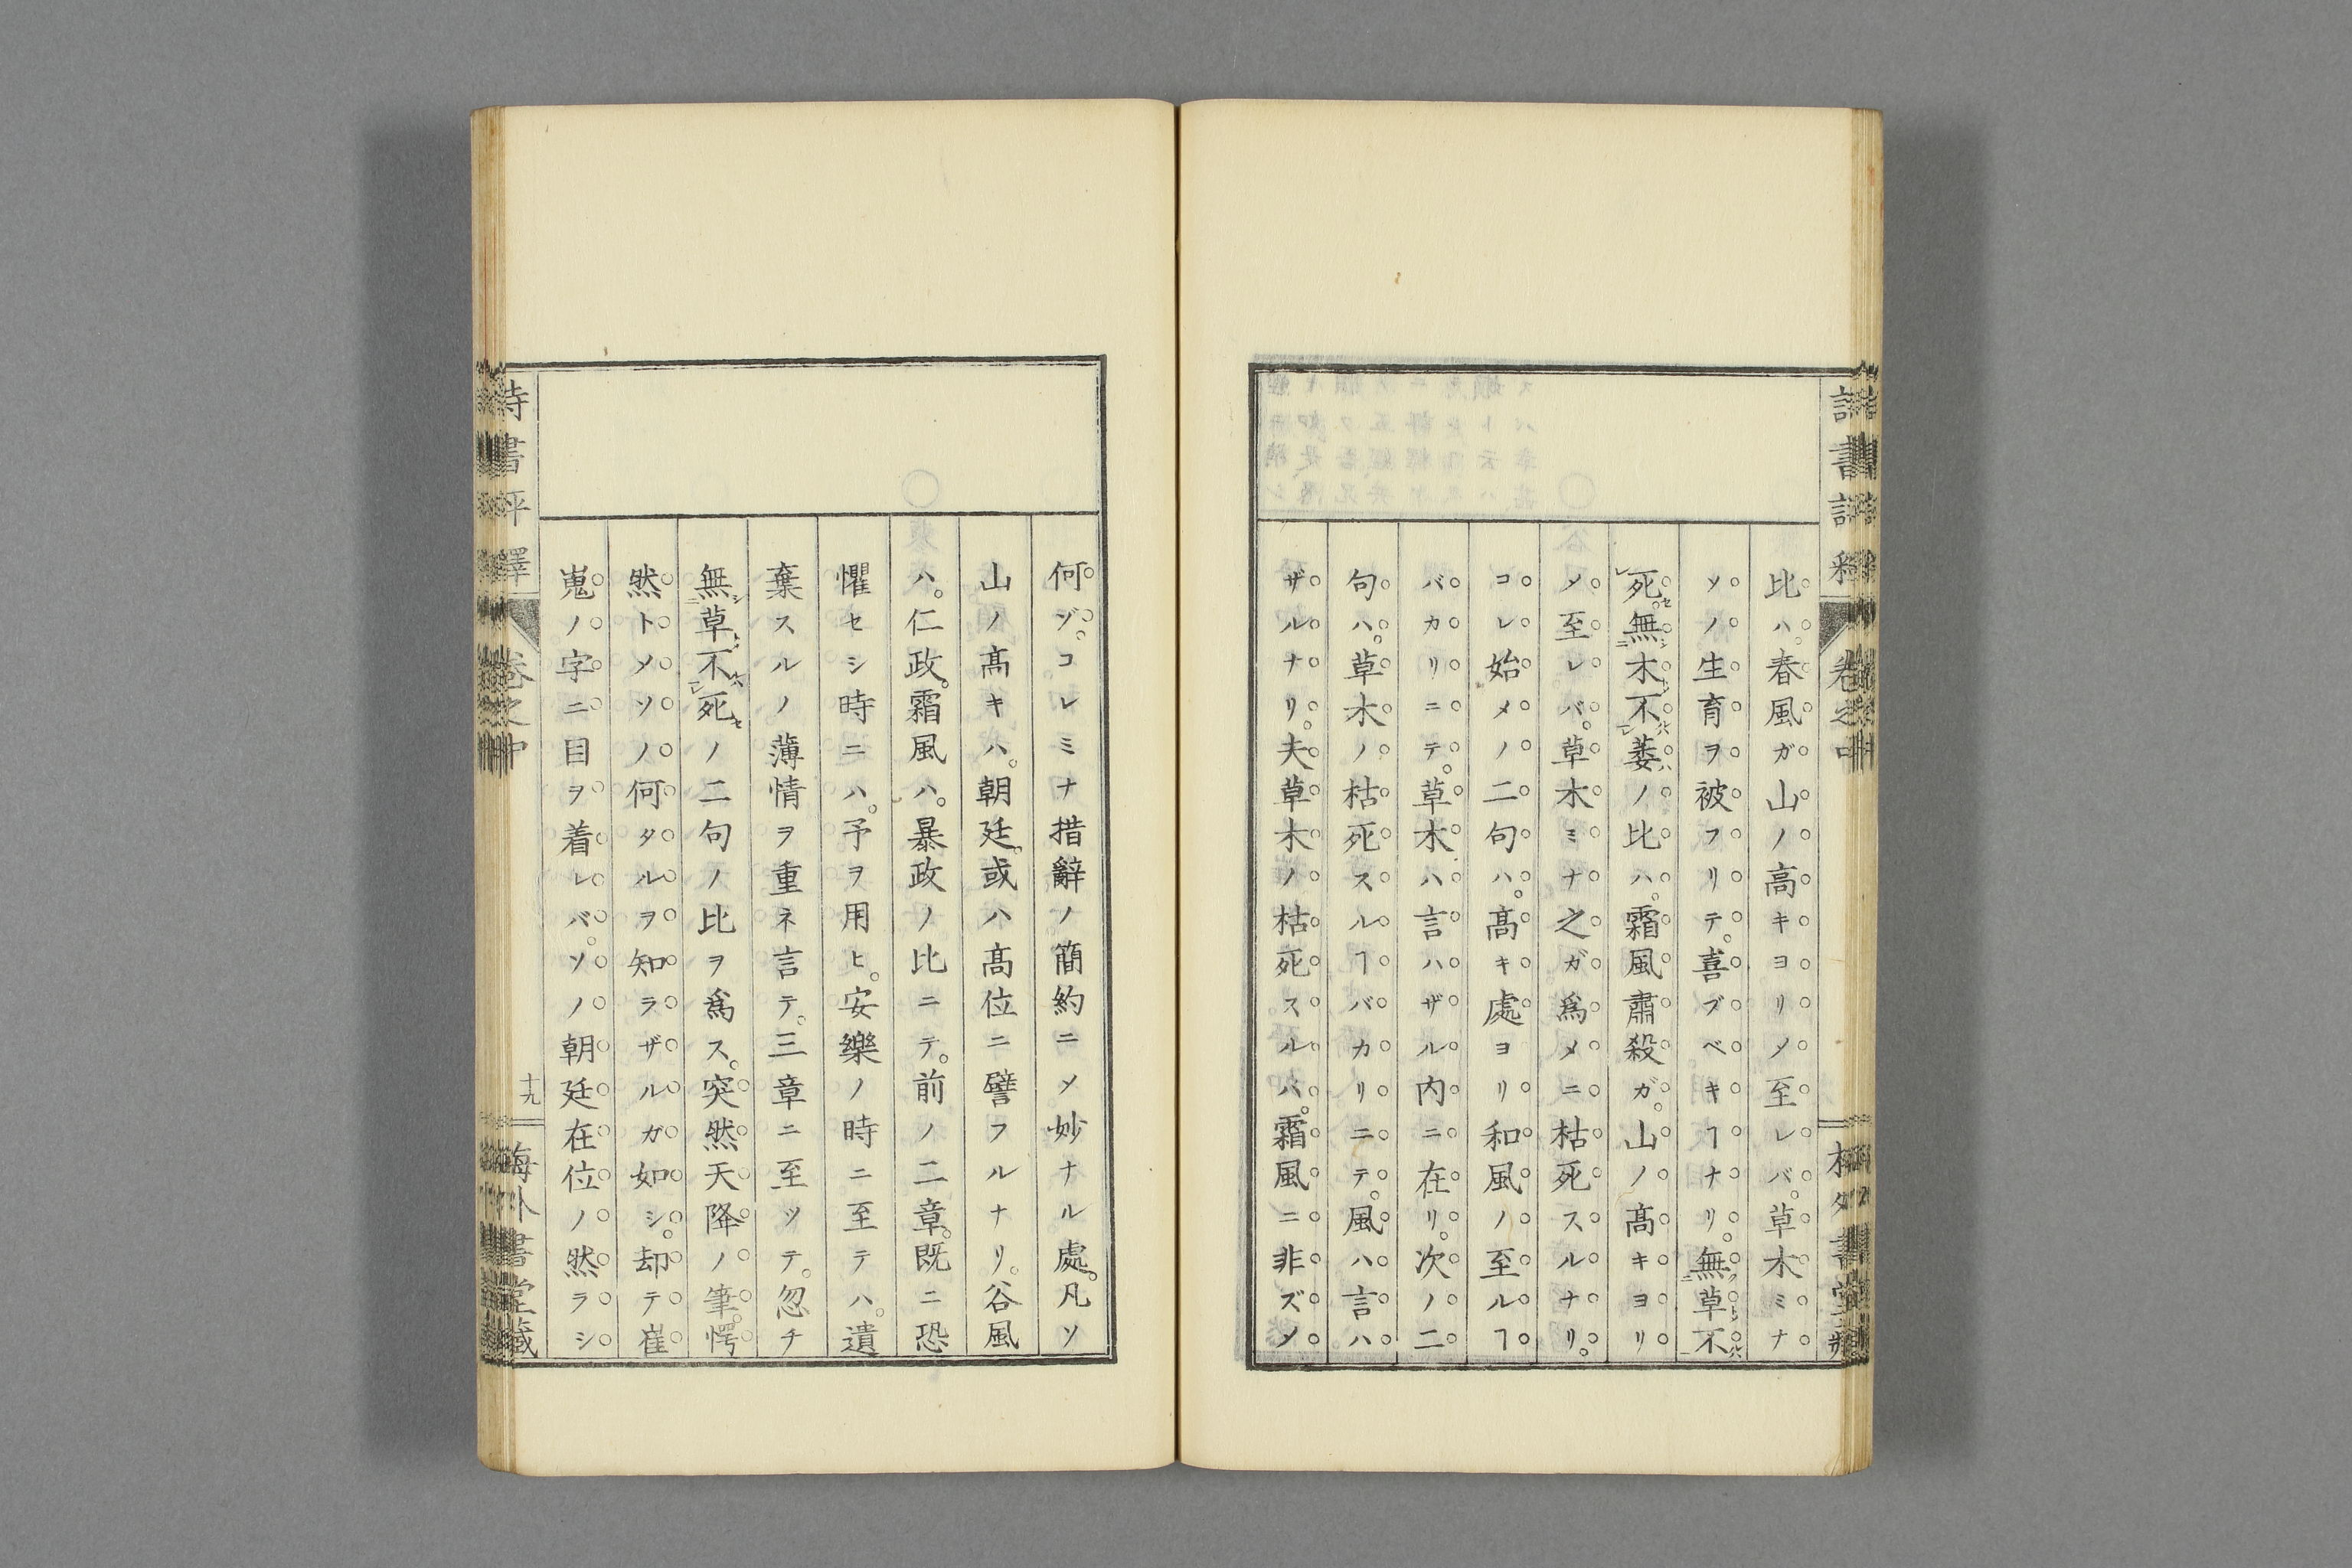 比ハ。春風ガ山ノ高キヨリメ至レバ。草木ミナ
ソノ生育ヲ被フリテ。喜ブベキヿナリ。無草不
死。無木不萎ノ比ハ。霜風肅殺ガ。山ノ髙キヨリ
メ至レバ。草木ミナ之ガ爲メニ枯死スルナリ。
コレ始メノ二句ハ。髙キ處ヨリ和風ノ至ルヿ
バカリニテ。草木ハ言ハザル内ニ在リ。次ノ二
句ハ。草木ノ枯死スルヿバカリニテ。風ハ言ハ
ザルナリ。夫草木ノ枯死スルバ。霜風ニ非ズメ
何ゾ。コレミナ措辭ノ簡約ニメ妙ナル處。凡ソ
山ノ髙キハ。朝廷。或ハ髙位ニ譬フルナリ。谷風
ハ。仁政。霜風ハ。暴政ノ比ニテ。前ノ二章。既ニ恐
懼セシ時ニハ。予ヲ用ヒ。安樂ノ時ニ至テハ。遺
棄スルノ薄情ヲ重ネ言テ。三章ニ至ツテ。忽チ
無草不死ノ二句ノ比ヲ爲ス。突然天降ノ筆。愕
然トメソノ何タルヲ知ラザルガ如シ。却テ崔
嵬ノ字ニ目ヲ着レバ。ソノ朝廷在位ノ然ラシ
卷之中
十九